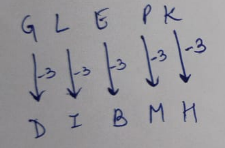 G L E P K
-3 -3 -3 -3 -3
D I B M H